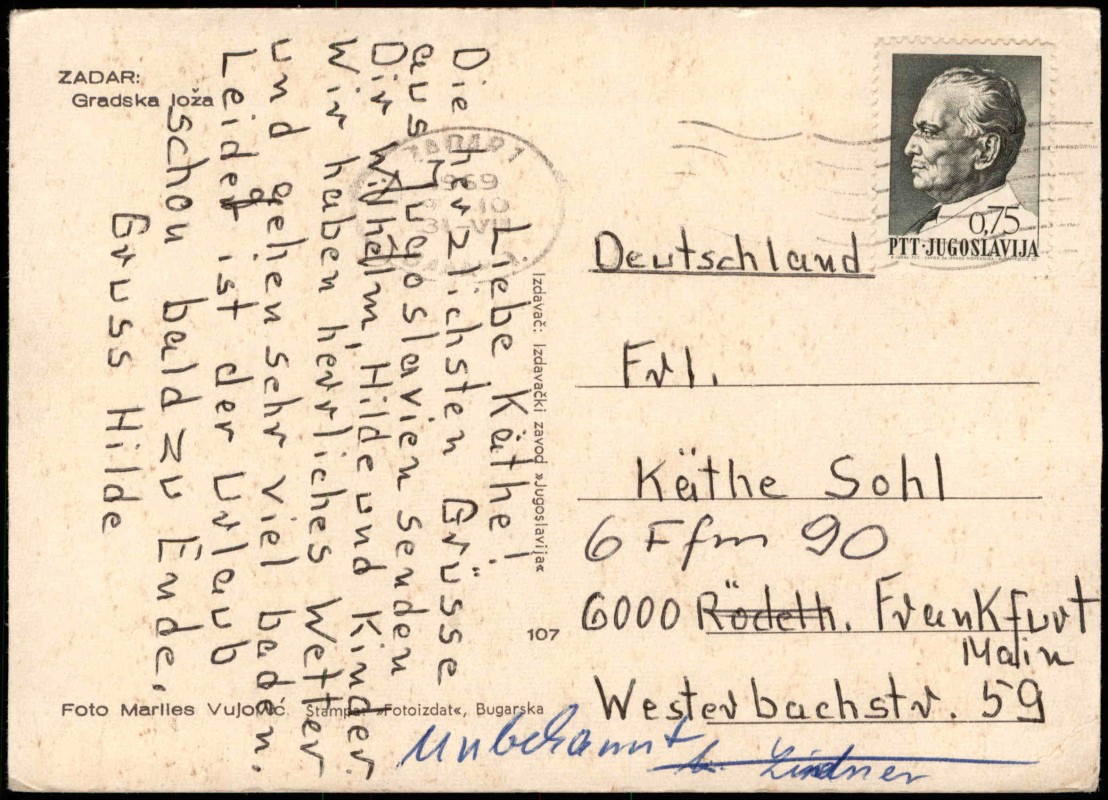 ZADAR:
Gradska loža
Liebe Käthe!
Die herzlichsten Grüsse
aus Jugoslavien senden
Dir Wilhelm, Hilde und Kinder.
Wir haben herrliches Wetter
und gehen sehr viel baden.
Leider ist der Urlaub
schon bald zu Ende.
Gruss Hilde
Izdavač: Izdavački zavod »Jugoslavija«
107
Foto Marlies Vujović. Štampa: »Fotoizdat«, Bugarska
1969
0,75
PTT·JUGOSLAVIJA
Deutschland
Frl.
Käthe Sohl
6 Ffm 90
6000 Rödelh. Frankfurt
Main
Westerbachstr. 59
Unbekannt
b. Lindner